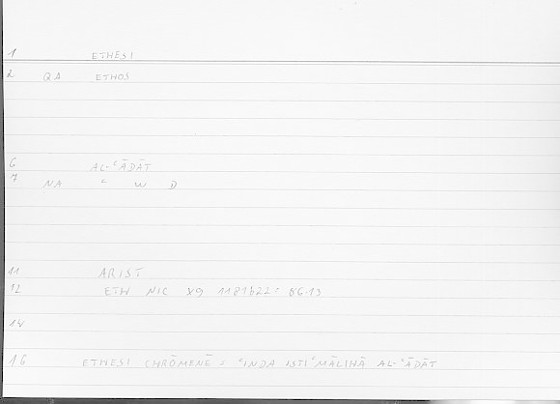 1 ETHESI
2 QA ETHOS
6 AL-ʿĀDĀT
7 NA ʿ W D
11 ARIST
12 ETH NIC X9 1181b22: 86.13
14
16 ETHESI CHRŌMENĒ = ʿINDA ISTIʿMĀLIHĀ AL-ʿĀDĀT